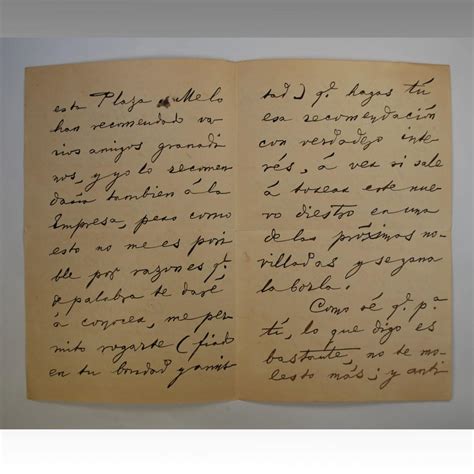 esta Plaza. Me lo
han recomendado va-
rios amigos granadi-
nos, y yo lo recomen-
daría tambien á la
Empresa, pero como
esto no me es posi-
ble por razones q.
de palabra te daré
á conocer, me per-
mito rogarte (fiado
en tu bondad y amist
tad) q. hagas tú
esa recomendación
con verdadero inte-
rés, á ver si sale
á torear este nue-
vo diestro en una
de las próximas no-
villadas y se gana
la borla.
Como sé q. pa
tí, lo que digo es
bastante, no te mo-
lesto más; y anti